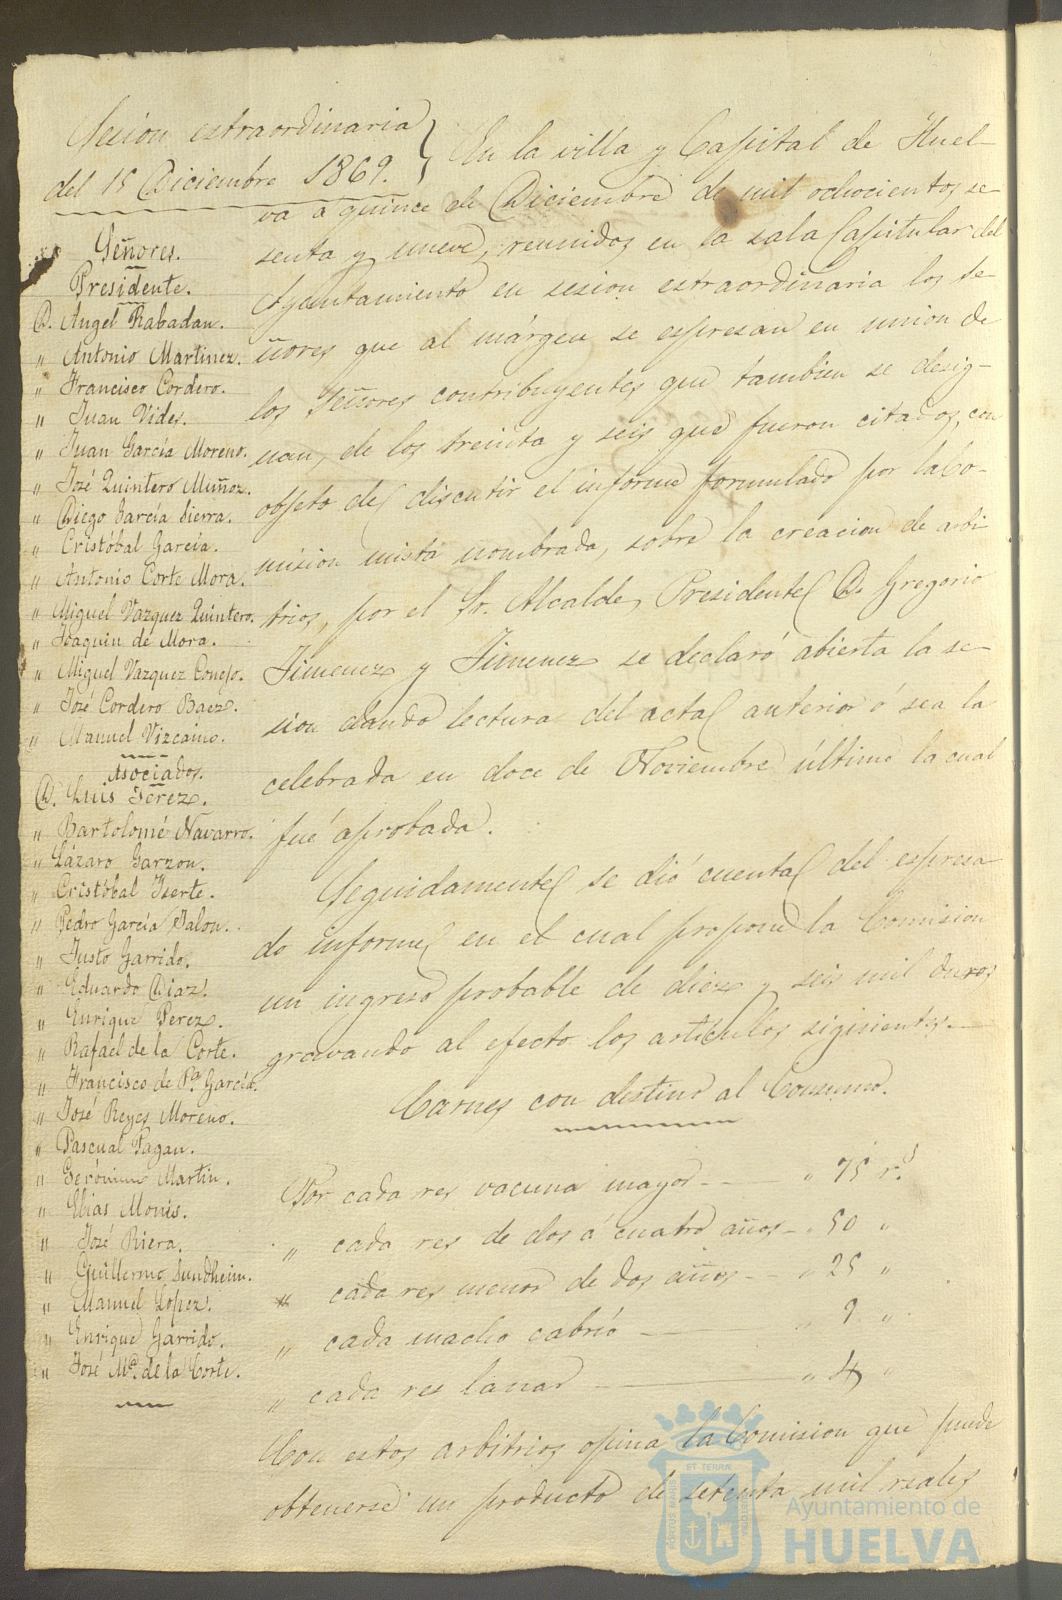 Sesion extraordinaria
del 15 Diciembre 1869.
Señores.
Presidente.
D. Angel Rabadan.
" Antonio Martinez.
" Francisco Cordero.
" Juan Vides.
" Juan García Moreno.
" José Quintero Muñoz.
" Diego García Sierra.
" Cristóbal García.
" Antonio Corte Mora.
" Miguel Vazquez Quintero.
" Joaquin de Mora.
" Miguel Vazquez Conejo.
" José Cordero Baez.
" Manuel Vizcaino.
Asociados.
D. Luis Jerez.
" Bartolomé Navarro.
" Lázaro Garzon.
" Cristóbal Iserte.
" Pedro García Jalon.
" Justo Garrido.
" Eduardo Diaz.
" Enrique Perez.
" Rafael de la Corte.
" Francisco de Pª García.
" José Reyes Moreno.
" Pascual Pagan.
" Gerónimo Martin.
" Elias Monis.
" José Riera.
" Guillermo Sundheim.
" Manuel Lopez.
" Enrique Garrido.
" José Mª de la Corte.
En la villa y Capital de Huel-
va á quince de Diciembre de mil ochocientos se-
senta y nueve, reunidos en la sala Capitular del
Ayuntamiento en sesion extraordinaria los Se-
ñores que al márgen se espresan en union de
los Señores contribuyentes que tambien se desig-
nan, de los treinta y seis que fueron citados, con
objeto de discutir el informe formulado por la Co-
mision mista nombrada, sobre la creacion de arbi
trios, por el Sr. Alcalde, Presidente D. Gregorio
Jimenez y Jimenez se declaró abierta la se-
sion dando lectura del acta anterior ó sea la
celebrada en doce de Noviembre último la cual
fué aprobada.
Seguidamente se dió cuenta del espresa
do informe en el cual propone la Comision
un ingreso probable de diez y seis mil duros
gravando al efecto los articulos siguientes.
Carnes con destino al Consumo.
Por cada res vacuna mayor " 75 r.s
" cada res de dos á cuatro años " 50 "
" cada res menor de dos años " 25 "
" cada macho cabrío " 9 "
" cada res lanar " 4 "
Con estos arbitrios opina la Comision que puede
obtenerse un producto de setenta mil reales
Ayuntamiento de
HUELVA